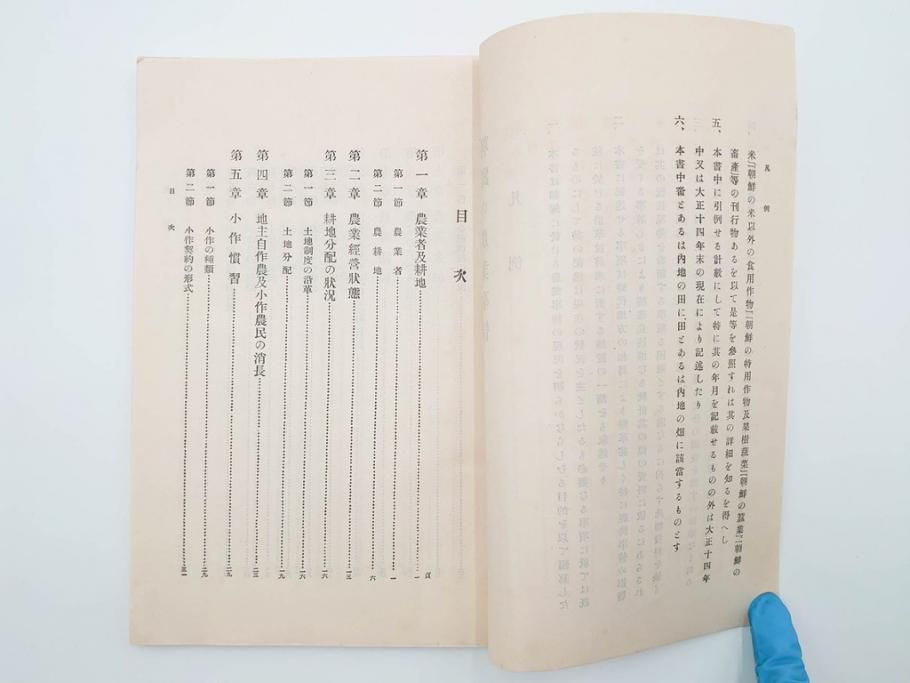 凡例
米」「朝鮮の米以外の食用作物」「朝鮮の特用作物及果樹蔬菜」「朝鮮の蠶業」「朝鮮の
畜產」等の刊行物あるを以て是等を參照すれは其の詳細を知るを得へし
五、本書中に引例せる計數にして特に其の年月を記載せるものの外は大正十四年
中又は大正十四年末の現在により記述したり
六、本書中畓とあるは內地の田に、田とあるは內地の畑に該當するものとす
目次
頁
第一章 農業者及耕地 一
第一節 農業者 一
第二節 農耕地 六
第二章 農業經營狀態 一三
第三章 耕地分配の狀況 一六
第一節 土地制度の沿革 一六
第二節 土地分配 一九
第四章 地主自作農及小作農民の消長 二三
第五章 小作慣習 二九
第一節 小作の種類 二九
第二節 小作契約の形式 三一
目次